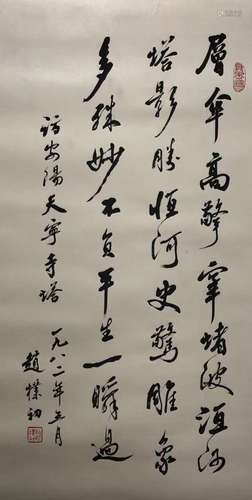 層傘高擎窣堵波洹河
塔影勝恒河更驚雕象
多殊妙不負平生一瞬過
訪安陽天寧寺塔
一九八二年五月
趙樸初